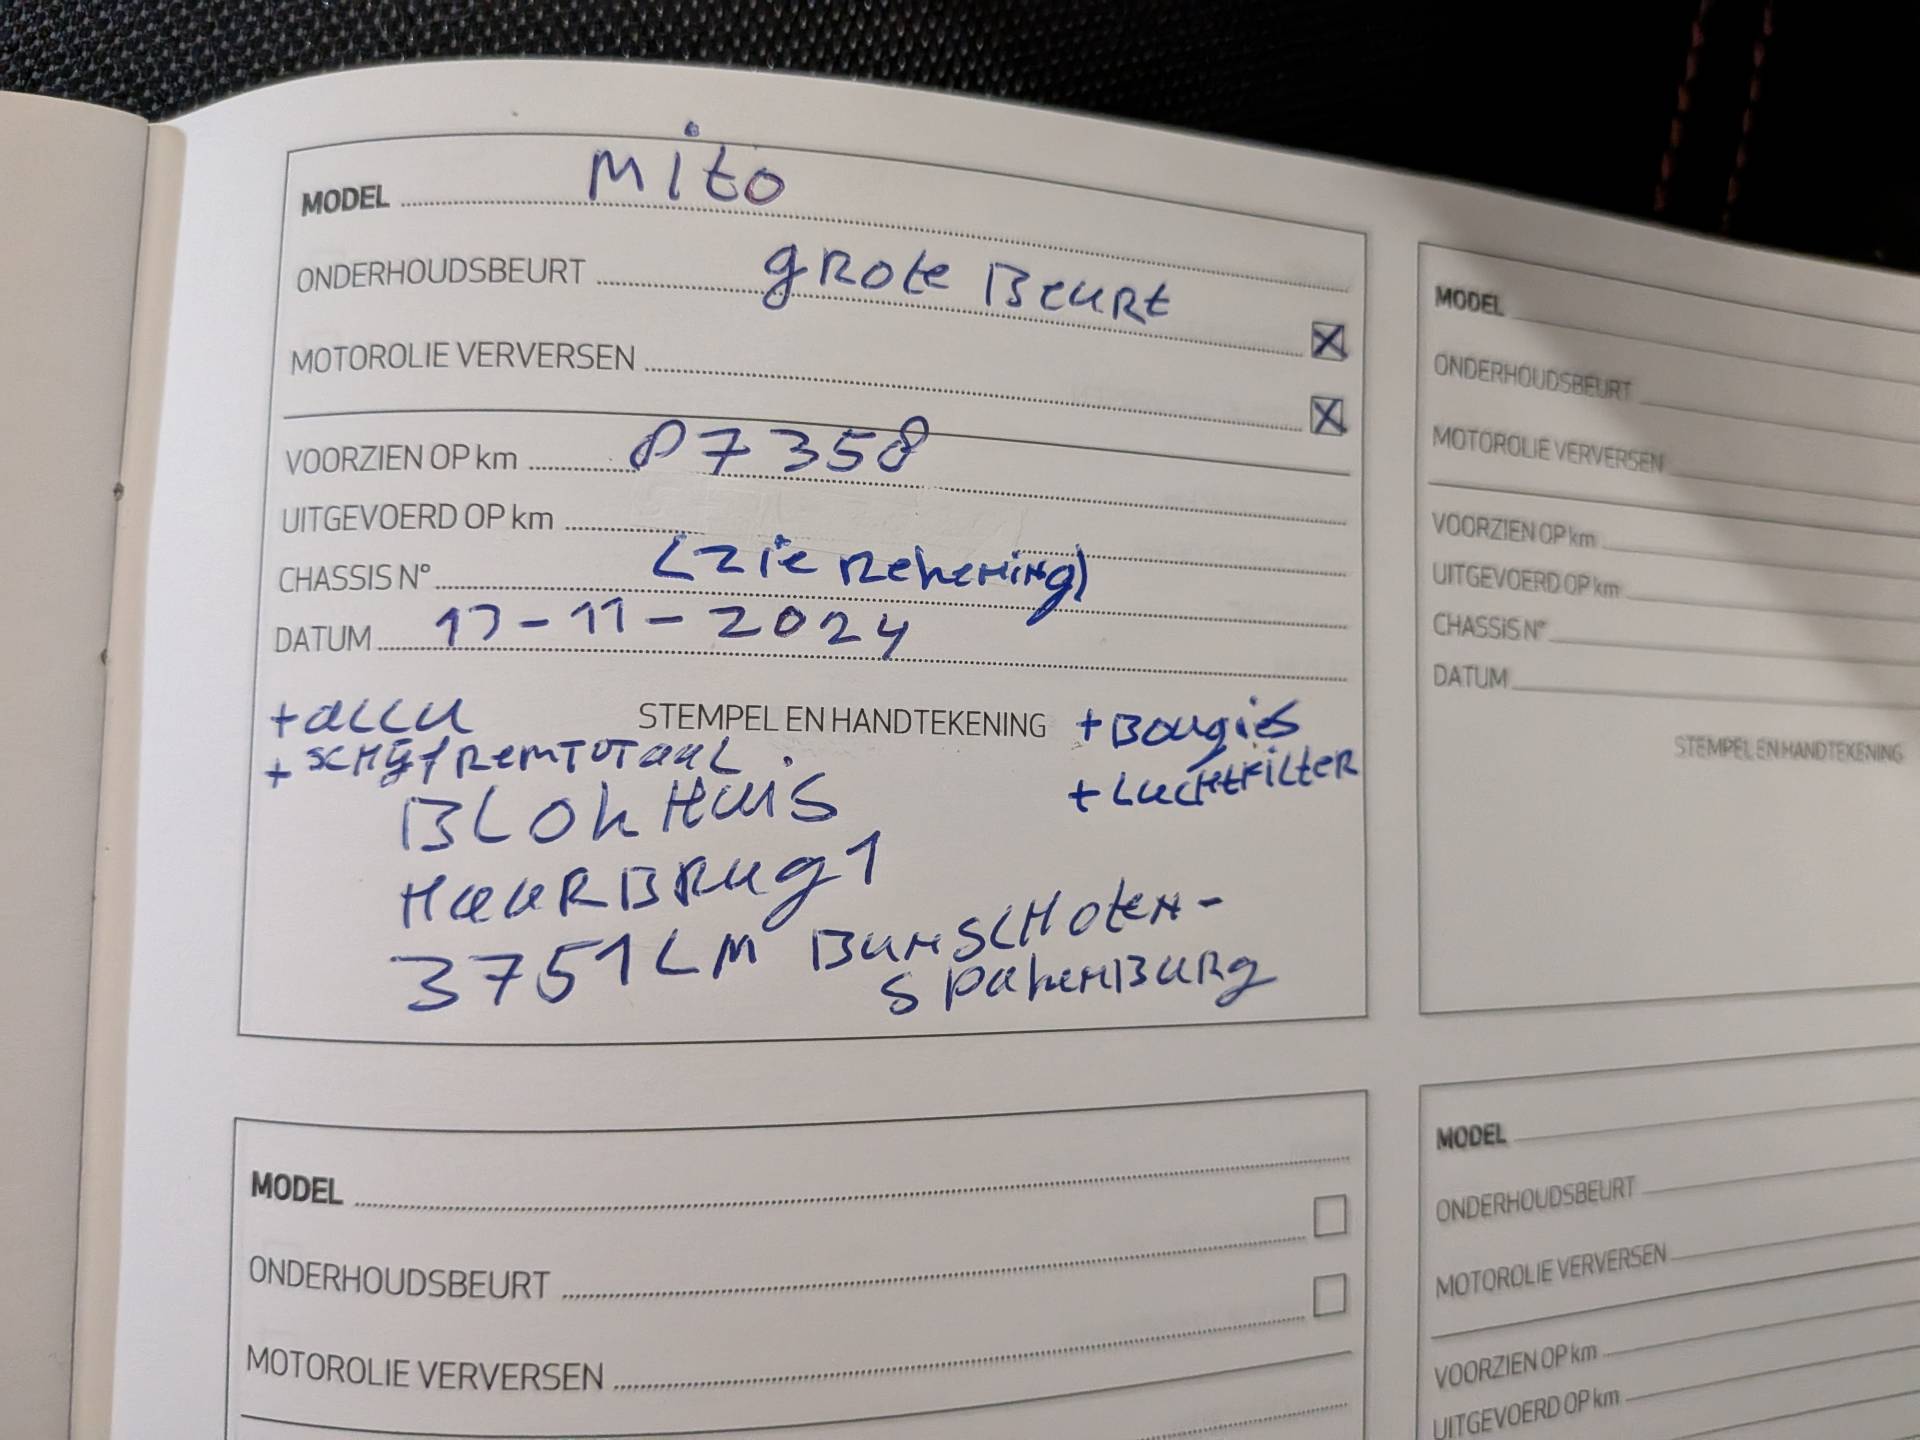 MODEL Mito
ONDERHOUDSBEURT grote Beurt
MOTOROLIE VERVERSEN
VOORZIEN OP km 87358
UITGEVOERD OP km
CHASSIS N° (zie rekening)
DATUM 13-11-2024
+accu STEMPEL EN HANDTEKENING +Bougies
+schijfremtotaal +Luchtfilter
Blokhuis
Haarbrug 1
3751LM Bunschoten-
Spakenburg
MODEL
ONDERHOUDSBEURT
MOTOROLIE VERVERSEN
VOORZIEN OP km
UITGEVOERD OP km
CHASSIS N°
DATUM
STEMPEL EN HANDTEKENING
MODEL
ONDERHOUDSBEURT
MOTOROLIE VERVERSEN
MODEL
ONDERHOUDSBEURT
MOTOROLIE VERVERSEN
VOORZIEN OP km
UITGEVOERD OP km